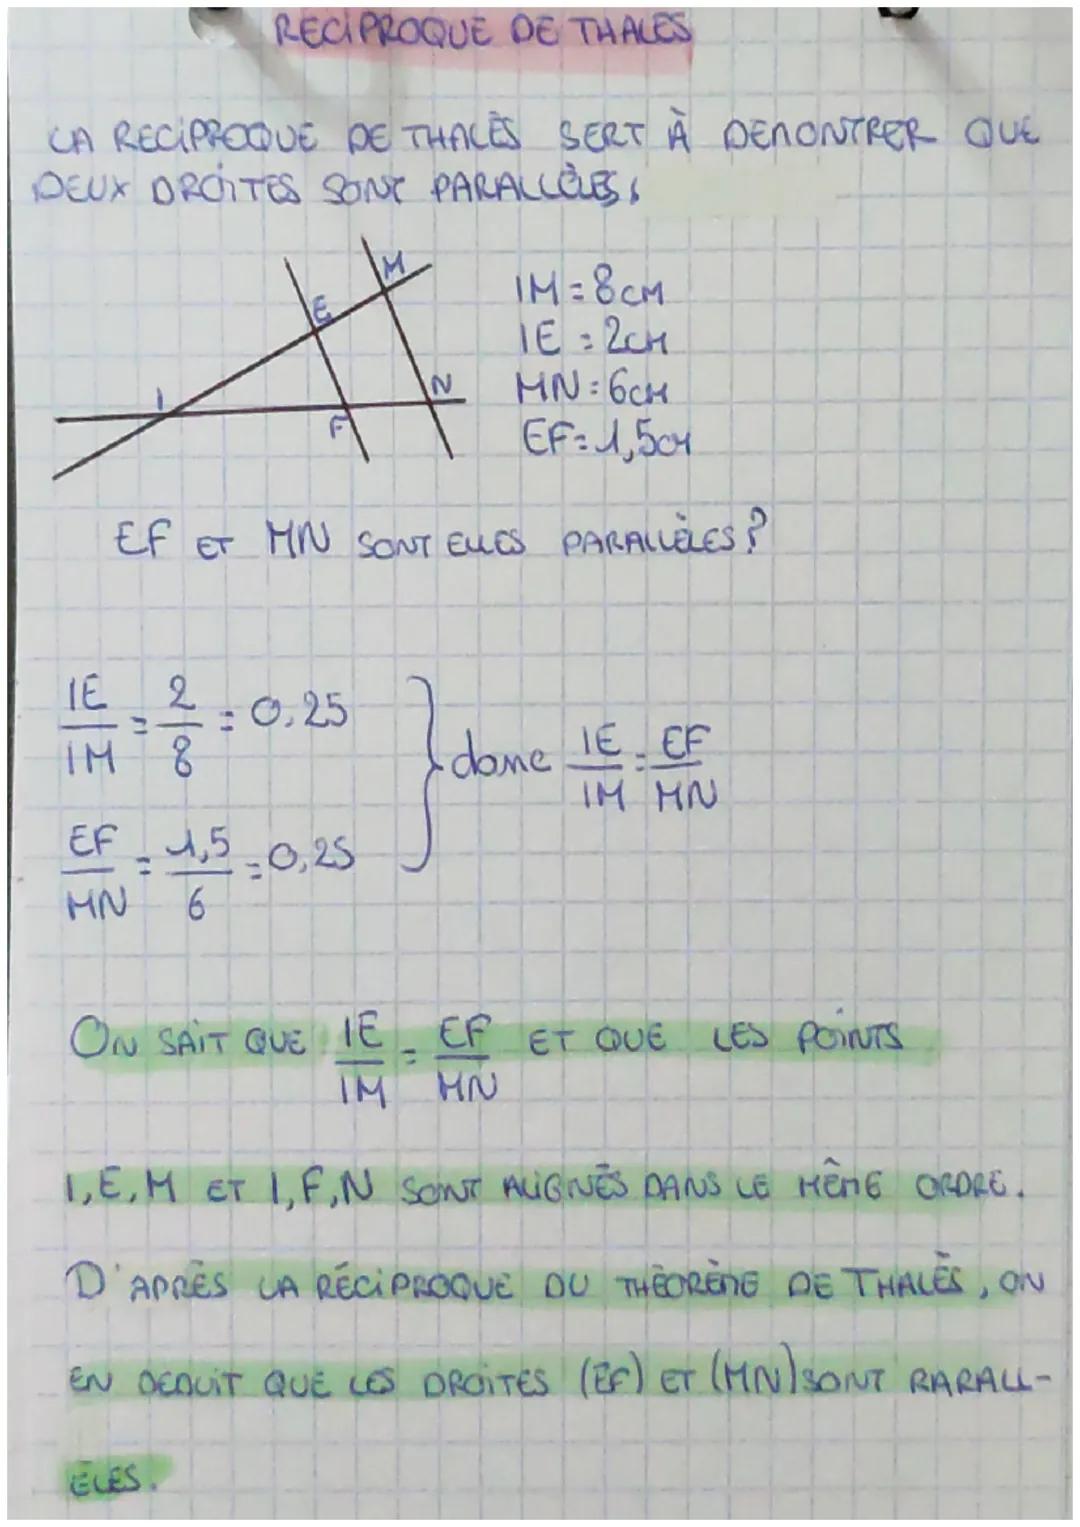 RECIPROQUE DE THALES
LA RECIPROQUE DE THALÈS SERT À DEMONTRER QUE
DEUX DROITES SONT PARALLÈLES.
M
E
I
N
F
IM = 8 CM
IE = 2 CM
MN = 6 CM
EF = 1,5 CM
EF ET MN SONT ELLES PARALLÈLES ?
IE/IM = 2/8 = 0.25
donc IE/IM = EF/MN
EF/MN = 1,5/6 = 0,25
ON SAIT QUE IE/IM = EF/MN ET QUE LES POINTS
I, E, M ET I, F, N SONT ALIGNÉS DANS LE MÊME ORDRE.
D'APRÈS LA RÉCIPROQUE DU THÉORÈME DE THALÈS, ON
EN DEDUIT QUE LES DROITES (EF) ET (MN) SONT RARALL-
ÈLES.